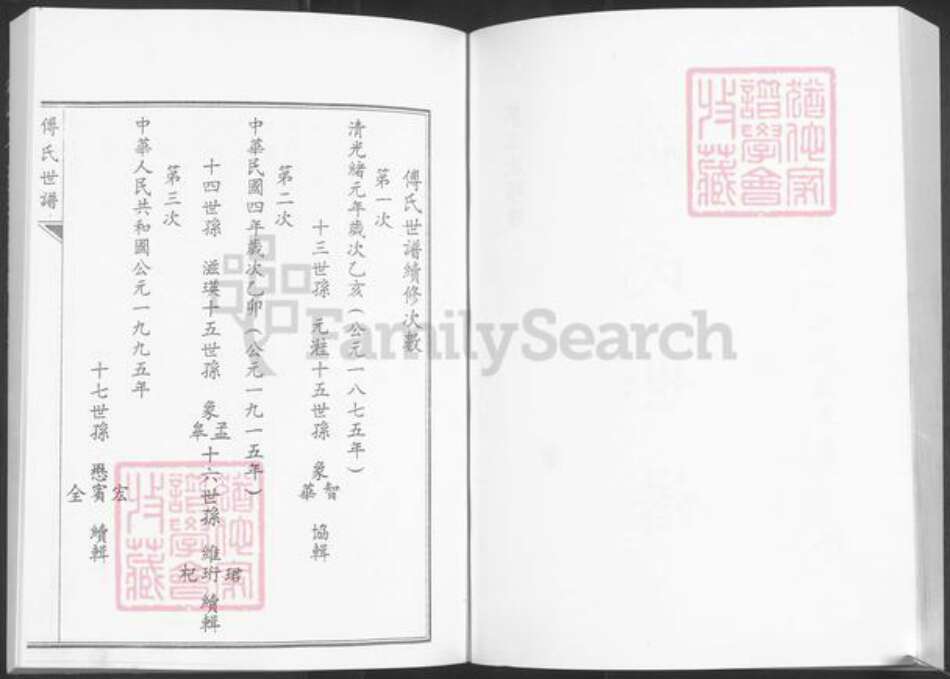 傅氏世譜續修次數
第一次
清光緒元年歲次乙亥(公元一八七五年)
十三世孫 元 十五世孫 象智華 協輯
第二次
中華民國四年歲次乙卯(公元一九一五年)
十四世孫 滋瑛十五世孫 象孟皋十六世孫 維珺珩杞 續輯
第三次
中華人民共和國公元一九九五年
十七世孫 懋宏賓全 續輯
傅氏世譜
猶他家
譜學會
收藏
猶他家
譜學會
收藏
FamilySearch